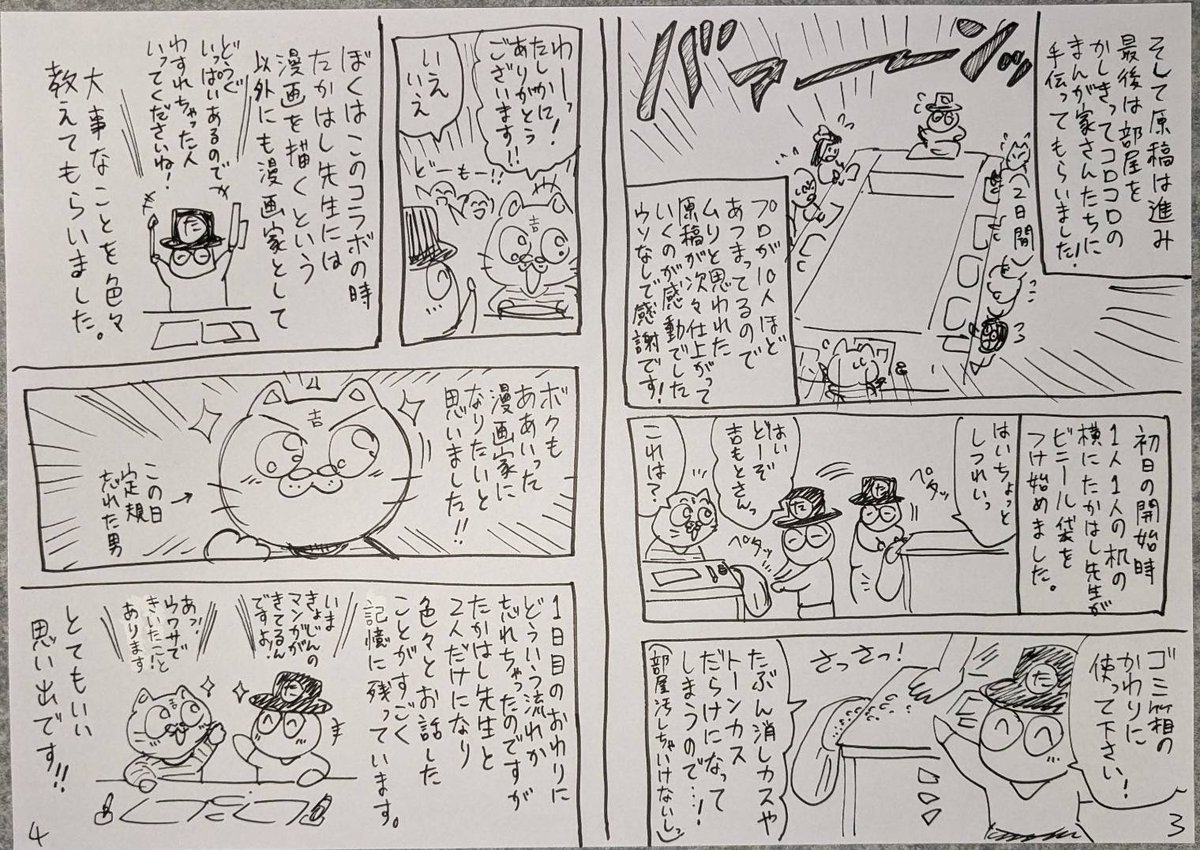 そして原稿は進み
最後は部屋を
かしきってコロコロの
まんが家さんたちに
手伝ってもらいました!
(2日間)
バァーーンッ
プロが10人ほど
あつまってるので
ムリと思われた
原稿が次々仕上がって
いくのが感動でした
ウソなしで感謝です!
初日の開始時
1人1人の机の
横にたかはし先生が
ビニール袋を
つけ始めました。
はいちょっと
しつれいっ
ペタッ
た
はい
どーぞ
吉もとさんっ
ペタッ
これは?
ゴミ箱の
かわりに
使って下さい!
た
さっさっ!
たぶん消しカスや
トーンカス
だらけになって
しまうので…!
(部屋汚しちゃいけないしっ)
3
わーっ
たしかに!
ありがとう
ございます!!
いえ
いえ
どーもー!!
吉
ぼくはこのコラボの時
たかはし先生には
漫画を描くという
以外にも漫画家として
どうぐ
いっぱいあるので
わすれちゃった人
いってくださいね!
た
大事なことを色々
教えてもらいました。
ボクも
ああいった
漫画家に
なりたいと
思いました!!
吉
この日
定規
忘れた男
1日目のおわりに
どういう流れか
忘れちゃったのですが
たかはし先生と
2人だけになり
色々とお話した
ことがすごく
記憶に残っています。
いま
きょじんの
マンガが
きてるん
ですよ!
た
あっ!
ウワサで
きいたこと
あります
吉
とてもいい
思い出です!!
4